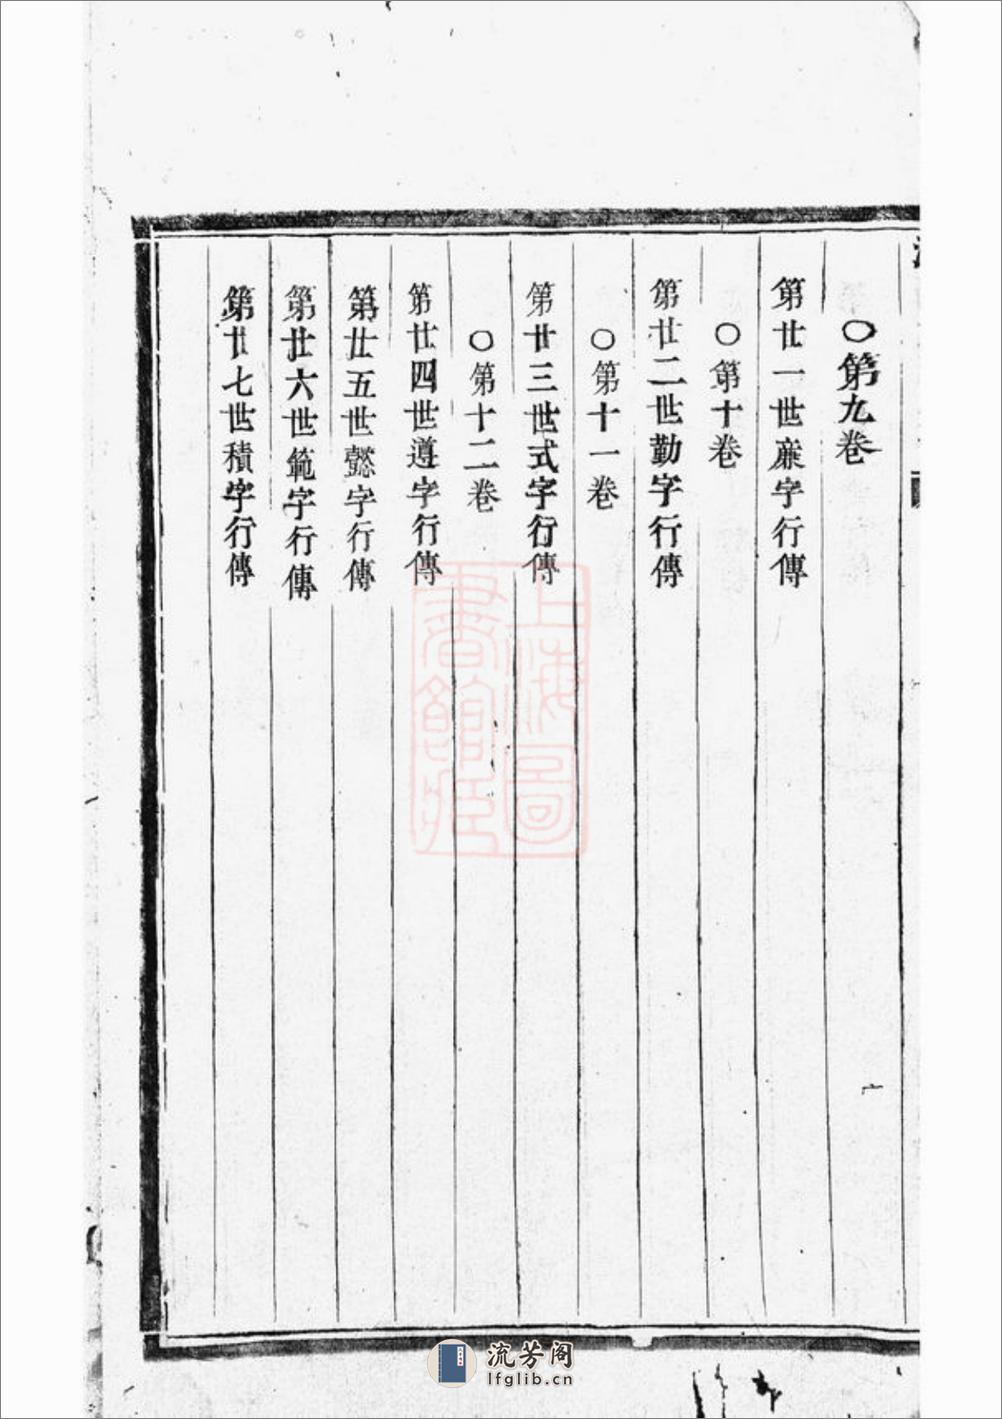 〇第九卷
第廿一世廉字行傳
〇第十卷
第廿二世勤字行傳
〇第十一卷
第廿三世式字行傳
〇第十二卷
第廿四世遵字行傳
第廿五世懿字行傳
第廿六世範字行傳
第廿七世積字行傳
上海圖
書館藏
流芳阁
lfglib.cn